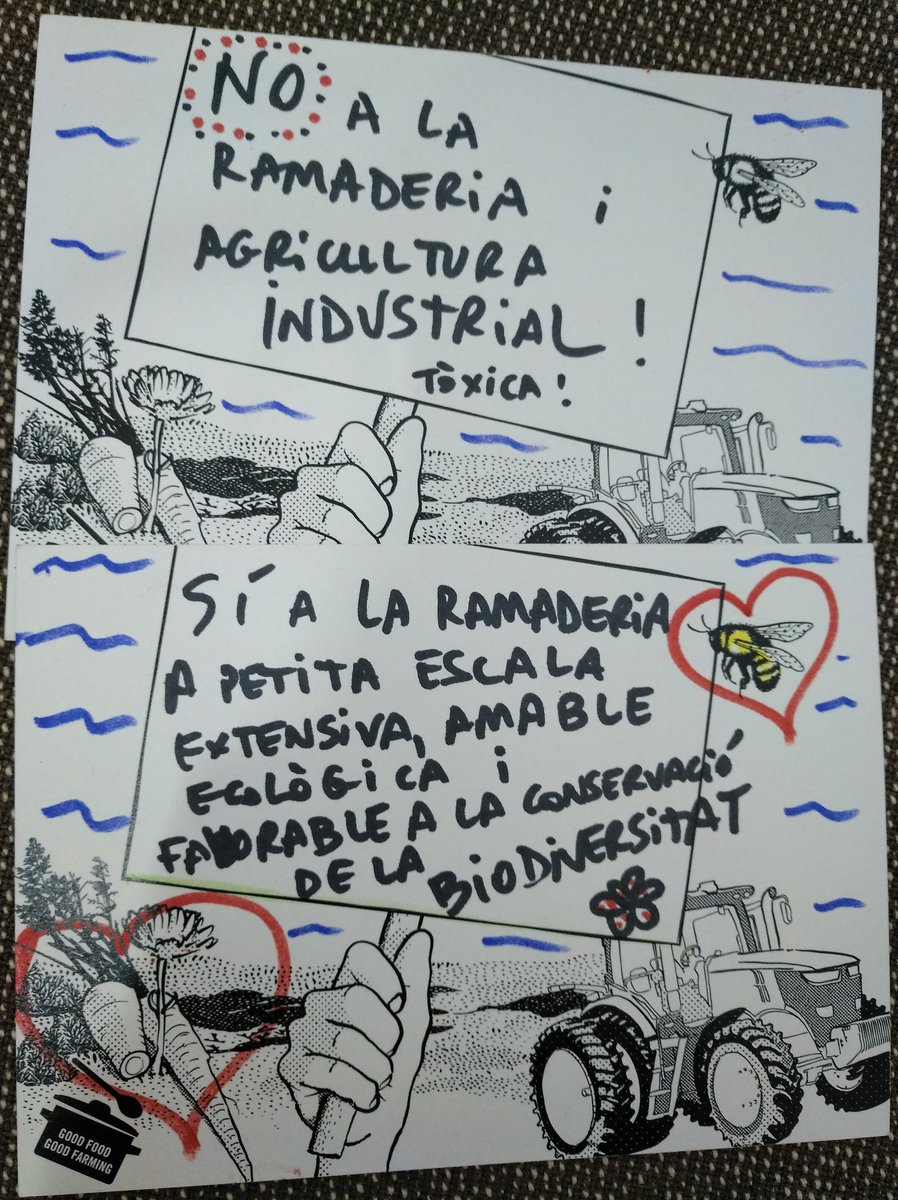 NO A LA
RAMADERIA i
AGRICULTURA
INDUSTRIAL !
TÒXICA !
SÍ A LA RAMADERIA
A PETITA ESCALA
EXTENSIVA, AMABLE
ECOLÒGICA i
FAVORABLE A LA CONSERVACIÓ
DE LA BIODIVERSITAT
GOOD FOOD
GOOD FARMING